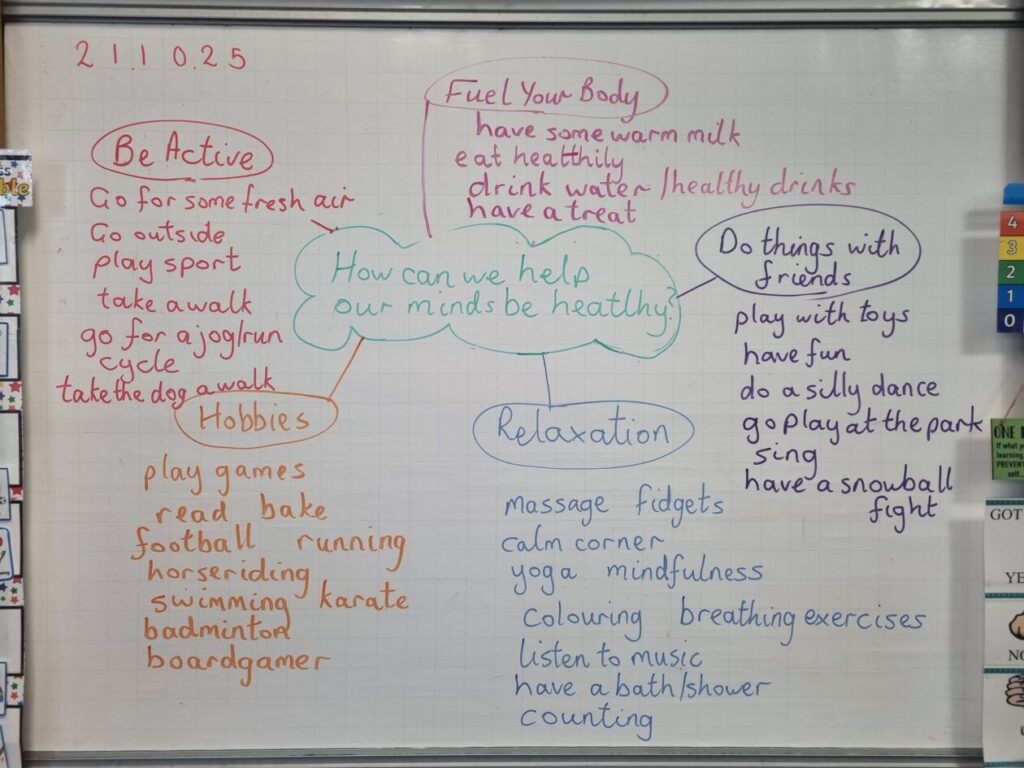 2 1.1 0.25
Fuel Your Body
have some warm milk
eat heatthily
drink water /healthy drinks
have a treat
Be Active
Go for some fresh air
Go outside
play sport
take a walk
go for a jog/run
cycle
take the dog a walk
How can we help
our minds be heatlhy?
Do things with
friends
play with toys
have fun
do a silly dance
go play at the park
sing
have a snowball
fight
Hobbies
play games
read bake
football running
horseriding
swimming karate
badminton
boardgamer
Relaxation
massage fidgets
calm corner
yoga mindfulness
colouring breathing exercises
listen to music
have a bath/shower
counting
4
3
2
1
0
ONE
If what y
learning
PREVENT
self...
GOT
YE
NO